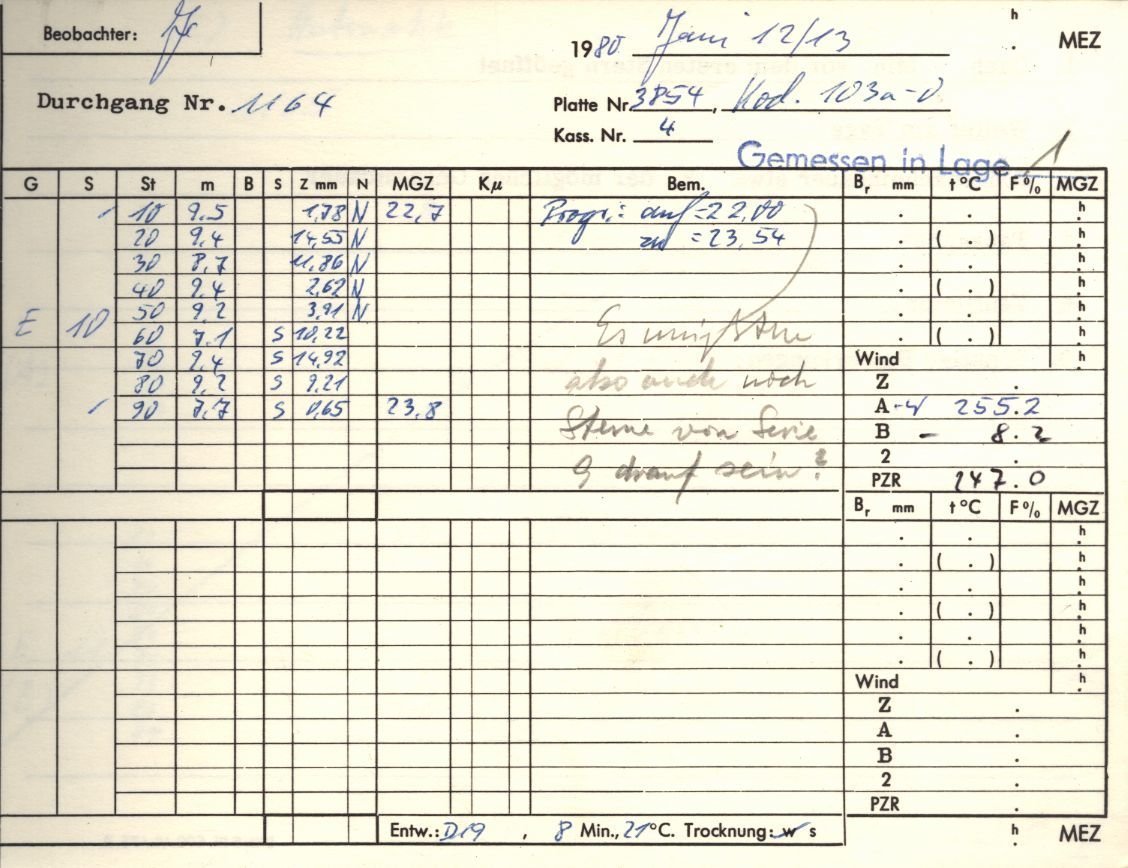 Beobachter:
1980 Juni 12/13
h
. MEZ
Durchgang Nr. 1164
Platte Nr. 3854, Kod. 103a-0
Kass. Nr. 4
Gemessen in Lage 1
G S St m B S Z mm N MGZ Kμ Bem. Br mm t°C F% MGZ
10 9,5 1,78 N 22,7 Progr.: auf = 22,00 . . h
20 9,4 14,55 N zu = 23,54 . ( . )
30 8,7 11,86 N . . h
40 9,4 2,62 N . ( . ) h
50 9,2 3,91 N . . h
E 10 60 7,1 S 10,22 Es müßten . ( . ) h
70 9,4 S 14,92 Wind h
80 9,2 S 9,21 also auch noch Z .
90 7,7 S 0,65 23,8 A 255.2
Sterne von Serie B - 8.2
2 .
9 drauf sein? PZR 247.0
Br mm t°C F% MGZ
. . h
. ( . ) h
. . h
. ( . ) h
. . h
. ( . ) h
Wind h
Z .
A .
B .
2 .
PZR .
Entw.: D19, 8 Min., 21°C. Trocknung: w s
h
. MEZ